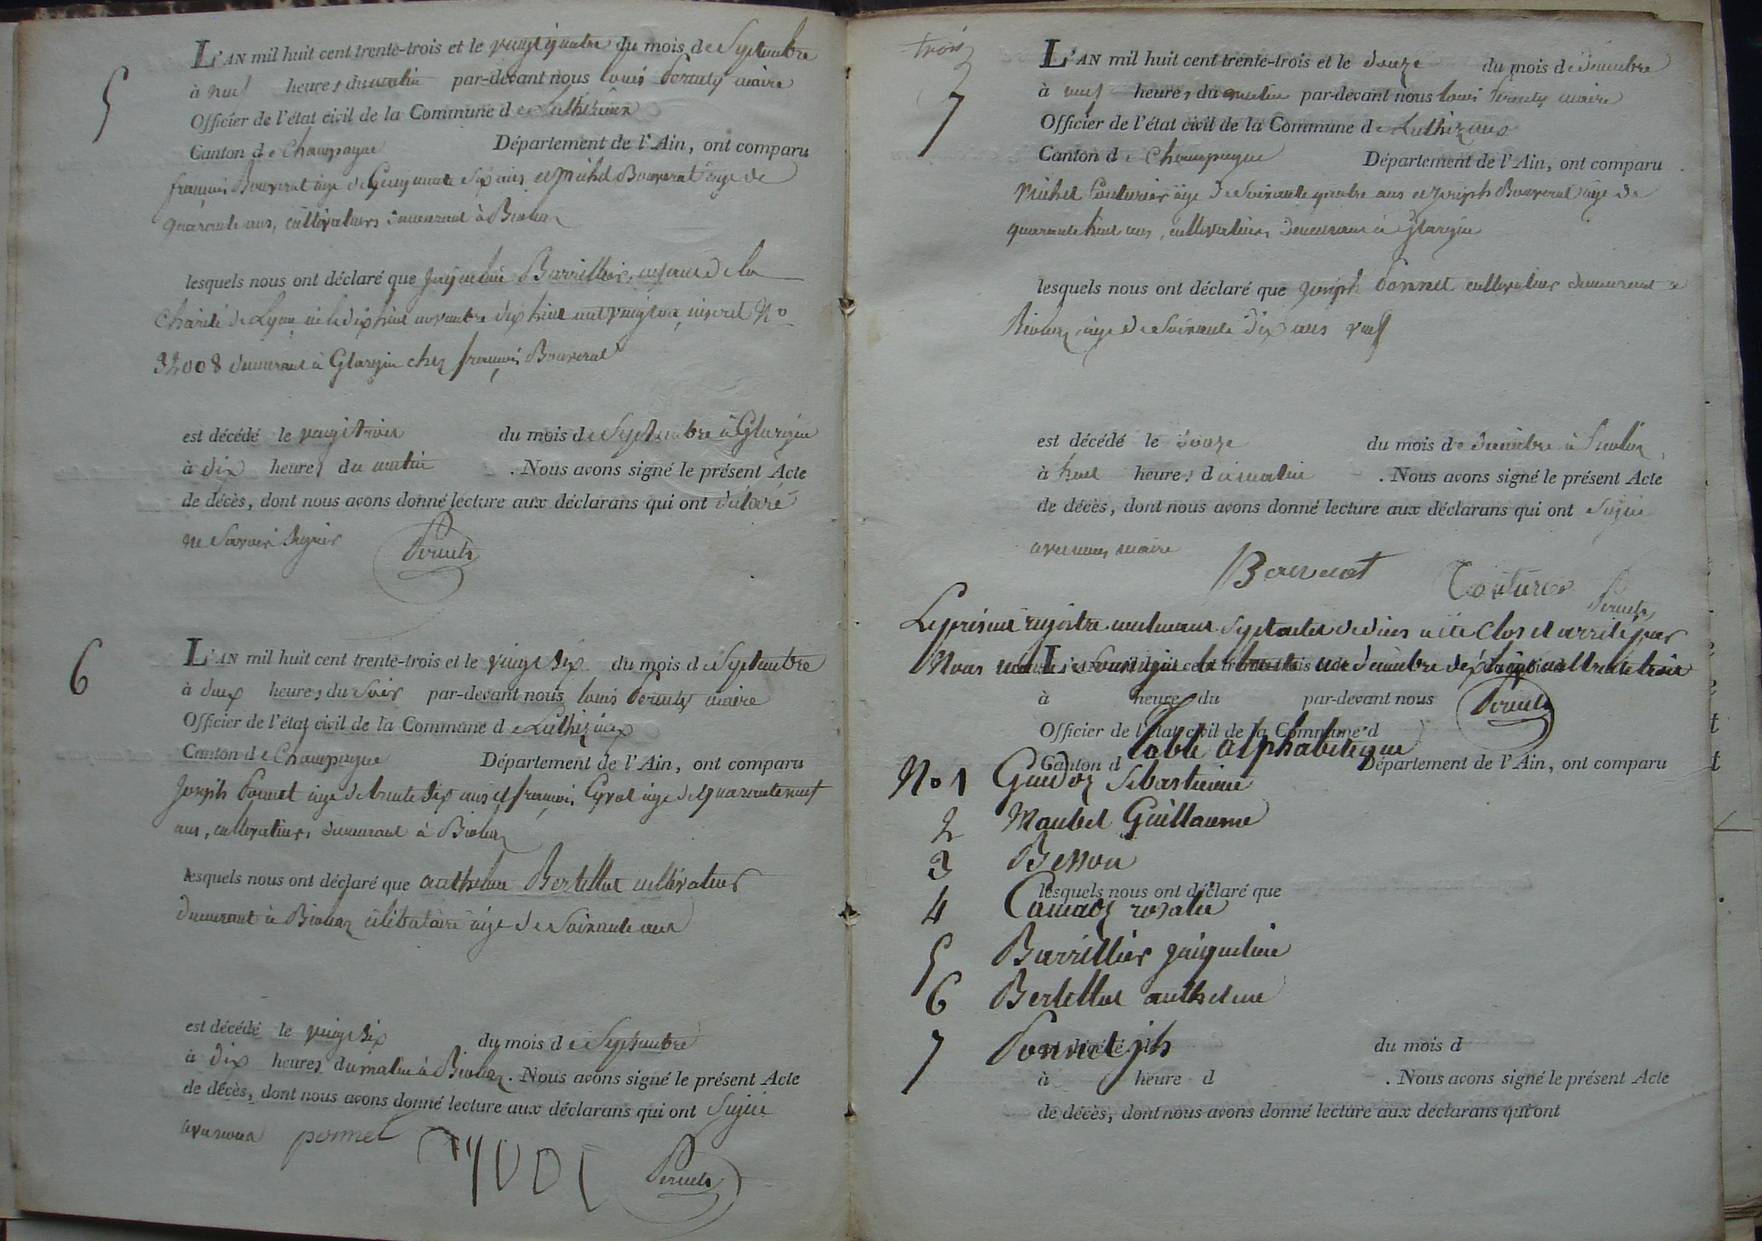 5
L'AN mil huit cent trente-trois et le vingt quatre du mois de Septembre
à neuf heures du matin par-devant nous Louis Peruty maire
Officier de l'état civil de la Commune de Luthezieux
Canton de Champagne Département de l'Ain, ont comparu
françois Bouverat âgé de Cinquante Six ans et Michel Bouverat âgé de
quarante ans, cultivateurs demeurant à
lesquels nous ont déclaré que Jaqueline Barrillier, enfant de la
Charité de Lyon né le dix huit novembre dix huit cent vingt un, inscrit No
32008 demeurant à Glargin chez françois Bouverat
est décédé le vingt trois du mois de Septembre à Glargin
à dix heures du matin . Nous avons signé le présent Acte
de décès, dont nous avons donné lecture aux déclarans qui ont déclaré
ne Savoir Signer
6
L'AN mil huit cent trente-trois et le vingt Six du mois de Septembre
à deux heures du Soir par-devant nous Louis Peruty maire
Officier de l'état civil de la Commune de Luthezieux
Canton de Champagne Département de l'Ain, ont comparu
Joseph Ponnet âgé de trente Six ans et françois âgé de quarante neuf
ans, cultivateurs demeurant à
lesquels nous ont déclaré que anthelme Bertellot cultivateur
demeurant à célibataire âgé de Soixante ans
est décédé le vingt Six du mois de Septembre
à dix heures du matin à . Nous avons signé le présent Acte
de décès, dont nous avons donné lecture aux déclarans qui ont Signé
avec nous ponnet
trois
7
L'AN mil huit cent trente-trois et le douze du mois de décembre
à neuf heures du matin par-devant nous Louis Peruty maire
Officier de l'état civil de la Commune de Luthezieux
Canton de Champagne Département de l'Ain, ont comparu
Michel Couturier âgé de Soixante quatre ans et Joseph Bouverat âgé de
quarante huit ans, cultivateurs demeurant à Glargin
lesquels nous ont déclaré que Joseph Ponnet cultivateur demeurant à
âgé de Soixante dix ans veuf
est décédé le douze du mois de décembre à
à huit heures du matin . Nous avons signé le présent Acte
de décès, dont nous avons donné lecture aux déclarans qui ont Signé
avec nous maire
Bouverat Couturier
Le présent registre contenant Sept actes de décès a été Clos et arrêté par
Nous maire Soussigné le trente un décembre dix huit cent trente trois
L'AN mil huit cent trente-trois
à heure du par-devant nous
Officier de l'état civil de la Commune d
Table alphabétique
Canton d Département de l'Ain, ont comparu
No 1 Guidoz Sebastienne
2 Maubel Guillaume
3 Besson
lesquels nous ont déclaré que
4 rosalie
5 Barrillier Jaiqueline
6 Bertellot anthelme
7 Ponnet jph
du mois d
à heure d . Nous avons signé le présent Acte
de décès, dont nous avons donné lecture aux déclarans qui ont